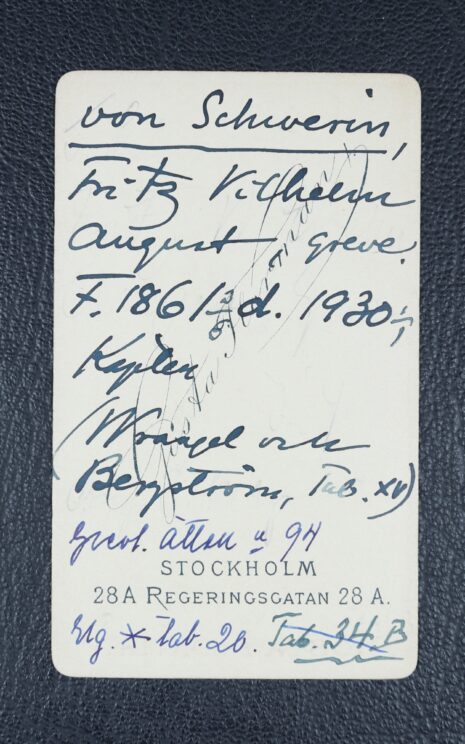 von Schwerin,
Fritz Vilhelm
August greve.
F. 1861 d. 1930
Kapten
(Wrangel och
Bergström, Tab. XV)
Gösta Florman
Grevl. ätten n 94
STOCKHOLM
28A REGERINGSGATAN 28 A.
Elg. * tab. 20. Tab. 34. B